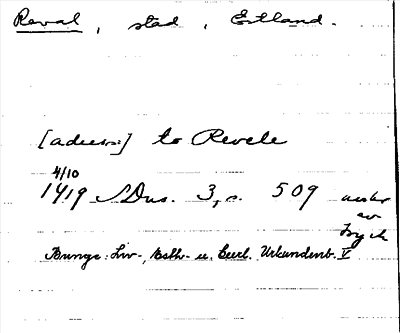 Reval, stad, Estland.
[adress:] to Revele
4/10
1419 SDns. 3, c. 509
avskr
av
tryck
Bunge: Liv-, Esth- u. Curl. Urkundenb. V